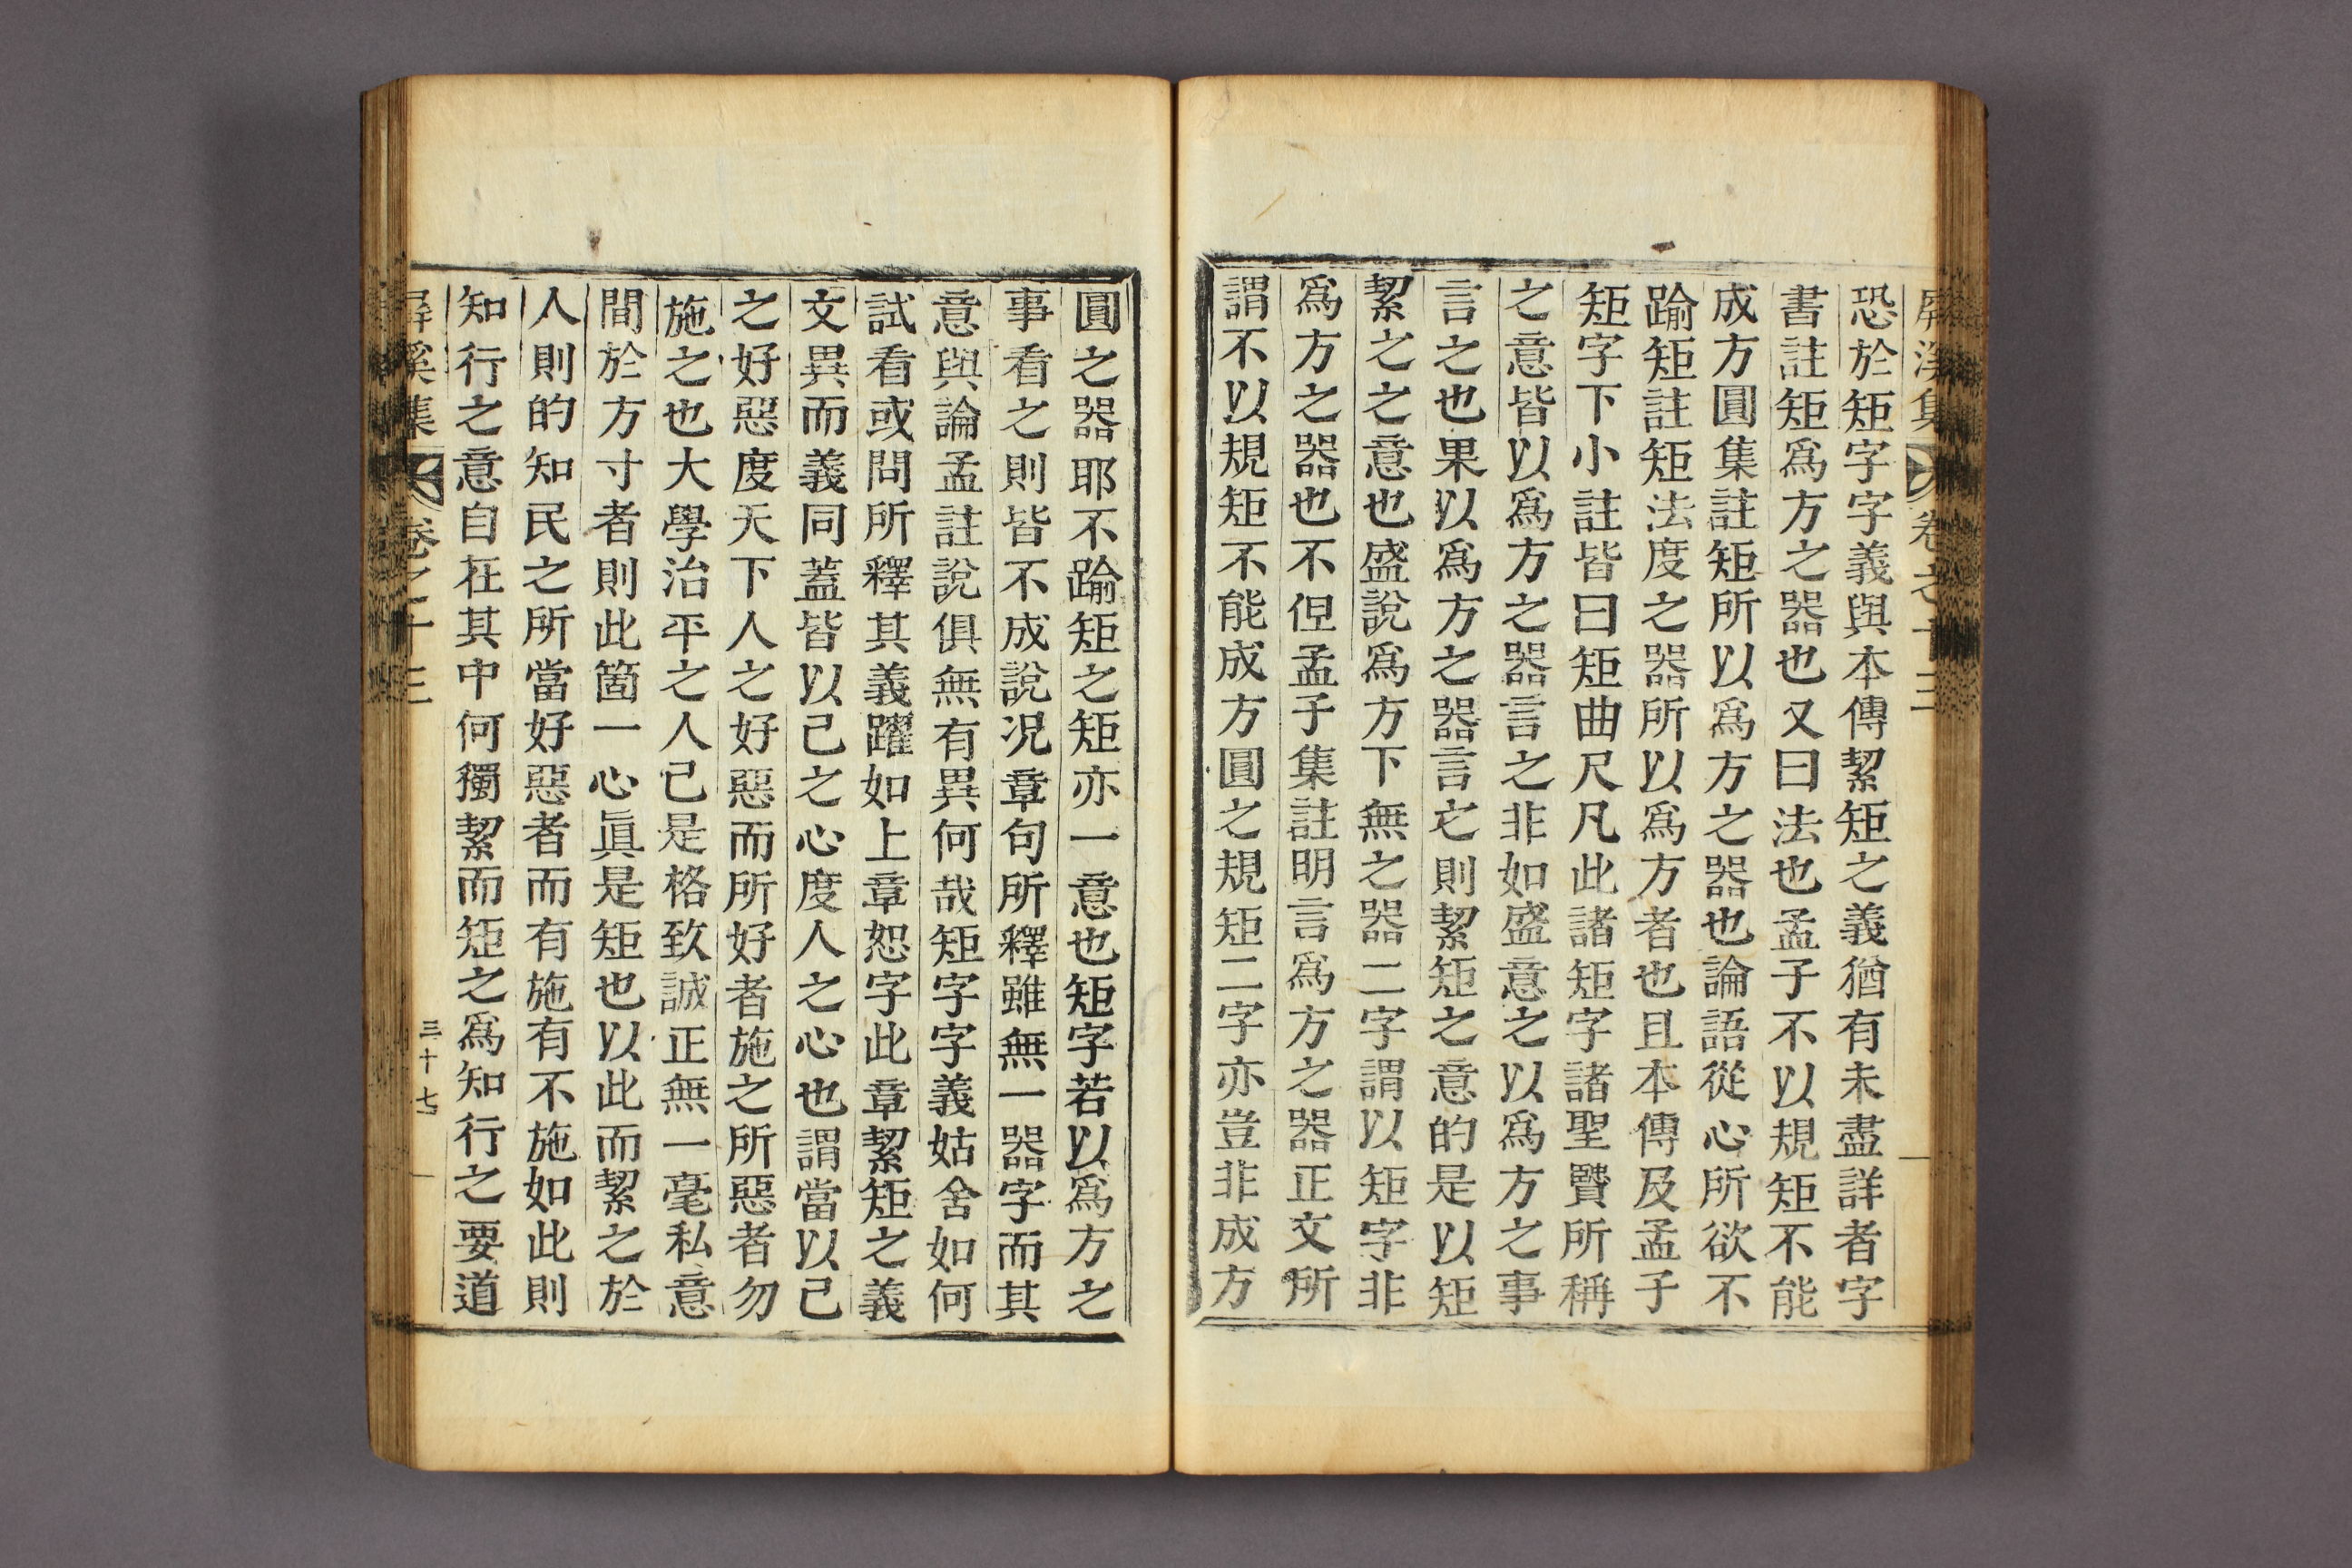 屛溪集 卷之十三
恐於矩字字義與本傳絜矩之義猶有未盡詳者字
書註矩爲方之器也又曰法也孟子不以規矩不能
成方圓集註矩所以爲方之器也論語從心所欲不
踰矩註矩法度之器所以爲方者也且本傳及孟子
矩字下小註皆曰矩曲尺凡此諸矩字諸聖贒所稱
之意皆以爲方之器言之非如盛意之以爲方之事
言之也果以爲方之器言之則絜矩之意的是以矩
絜之之意也盛說爲方下無之器二字謂以矩字非
爲方之器也不但孟子集註明言爲方之器正文所
謂不以規矩不能成方圓之規矩二字亦豈非成方
圓之器耶不踰矩之矩亦一意也矩字若以爲方之
事看之則皆不成說况章句所釋雖無一器字而其
意與論孟註說俱無有異何哉矩字字義姑舍如何
試看或問所釋其義躍如上章恕字此章絜矩之義
文異而義同蓋皆以己之心度人之心也謂當以己
之好惡度天下人之好惡而所好者施之所惡者勿
施之也大學治平之人已是格致誠正無一毫私意
間於方寸者則此箇一心眞是矩也以此而絜之於
人則的知民之所當好惡者而有施有不施如此則
知行之意自在其中何獨絜而矩之爲知行之要道
屛溪集 卷之十三 三十七